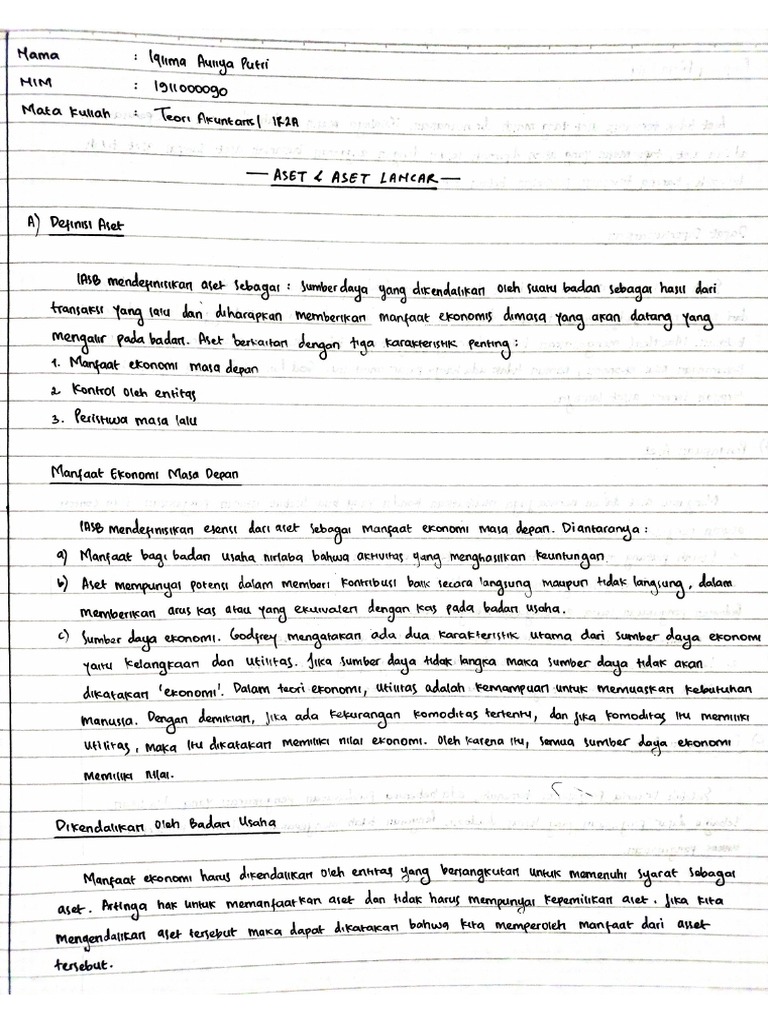 Nama : Iqlima Auliya Putri
NIM : 1911000090
Mata Kuliah : Teori Akuntansi / 1K2A
— ASET & ASET LANCAR —
A) Definisi Aset
IASB mendefinisikan aset sebagai : sumber daya yang dikendalikan oleh suatu badan sebagai hasil dari
transaksi yang lalu dan diharapkan memberikan manfaat ekonomis dimasa yang akan datang yang
mengalir pada badan. Aset berkaitan dengan tiga karakteristik penting :
1. Manfaat ekonomi masa depan
2. Kontrol oleh entitas
3. Peristiwa masa lalu
Manfaat Ekonomi Masa Depan
IASB mendefinisikan esensi dari aset sebagai manfaat ekonomi masa depan. Diantaranya :
a) Manfaat bagi badan usaha nirlaba bahwa aktivitas yang menghasilkan keuntungan.
b) Aset mempunyai potensi dalam memberi kontribusi baik secara langsung maupun tidak langsung, dalam
memberikan arus kas atau yang ekuivalen dengan kas pada badan usaha.
c) Sumber daya ekonomi. Godfrey mengatakan ada dua karakteristik utama dari sumber daya ekonomi
yaitu kelangkaan dan utilitas. Jika sumber daya tidak langka maka sumber daya tidak akan
dikatakan 'ekonomi'. Dalam teori ekonomi, utilitas adalah kemampuan untuk memuaskan kebutuhan
manusia. Dengan demikian, jika ada kekurangan komoditas tertentu, dan jika komoditas itu memiliki
utilitas, maka itu dikatakan memiliki nilai ekonomi. Oleh karena itu, semua sumber daya ekonomi
memiliki nilai.
Dikendalikan Oleh Badan Usaha
Manfaat ekonomi harus dikendalikan oleh entitas yang bersangkutan untuk memenuhi syarat sebagai
aset. Artinya hak untuk memanfaatkan aset dan tidak harus mempunyai kepemilikan aset. Jika kita
mengendalikan aset tersebut maka dapat dikatakan bahwa kita memperoleh manfaat dari asset
tersebut.